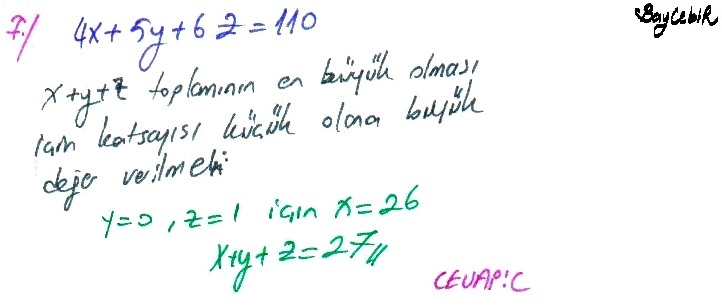 7./ 4x+5y+6z=110
BayCebiR
x+y+z toplamının en büyük olması
için katsayısı küçük olana büyük
değer verilmeli
y=0, z=1 için x=26
x+y+z=27//
CEVAP:C